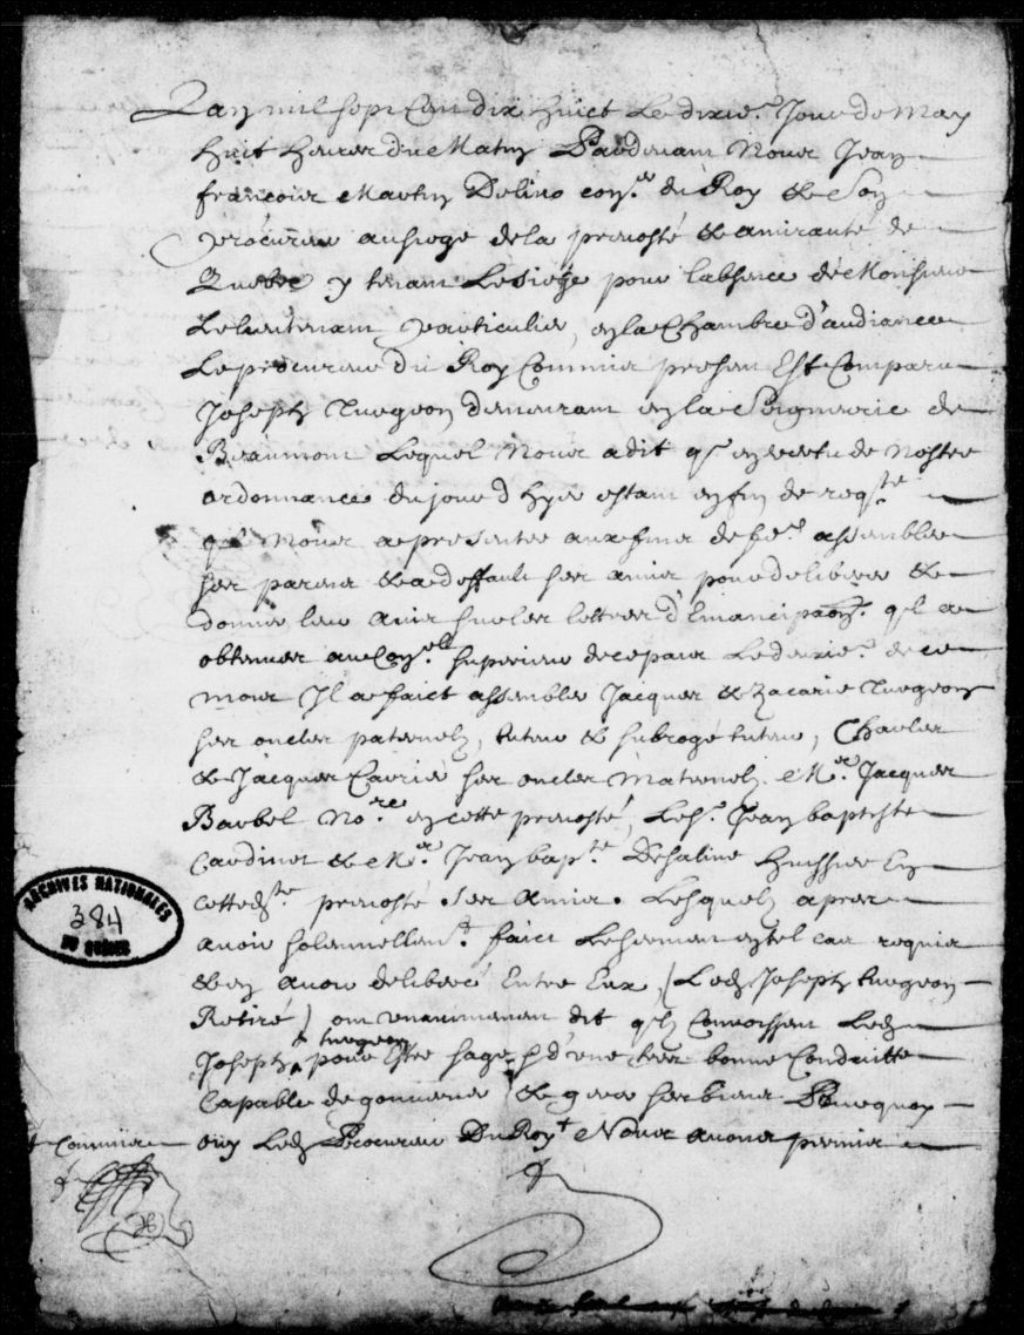 Lan mil sept Cen dix huict Le dixie.e Jour de May
huit heures du Matin Pardevant Nous Jean
francois Martin Delino con.er du Roy & Son
procureur au siege de la prevosté & amirauté de
Quebec y tenant Le siege pour labsence de Monsieur
Le lieutenant particulier, en la Chambre d'audiance
Le procureur du Roy Commis presen Est Comparu
Joseph Turgeon demeurant en la Seigneurie de
Beaumont Lequel Nous a dit q.e en vertu de Nostre
ordonnance du jour d hyer estant en fin de req.te
q.l Nous a presentée aux fins de fe.e assembler
ses parens & a deffault ses amis pour deliberer &
donner leur avis sur les lettres d'Emancipaon. q.l a
obtenues au Con.eil superieur de ce pais Le deuxie.e de ce
mois Il a faict assembler Jacques & Zacarie Turgeon
ses oncles paternels, tuteur & subrogé tuteur, Charles
& Jacques Couric ses oncles Maternels. M.e Jacques
Barbel No.re en cette prevosté, Le S.r Jean baptiste
Cardinet & M.e Jean bap.te Desaline huissier En
cetted.te prevosté ses Amis. Lesquels apres
avoir solemnellem.t faict Le sermen en tel cas requis
& en avoir deliberé Entre Eux, (Led. Joseph turgeon
Retiré) ont unanimemen dit q.ls Connoissent Led.
turgeon
Joseph pour Estre sage & d'une tres bonne Conduitte
Capable de gouverner & gerer ses biens Pourquoy
+ Commis ouy Led. Procureur Du Roy + Nous avons permis
ARCHIVES NATIONALES
384
DU QUÉBEC